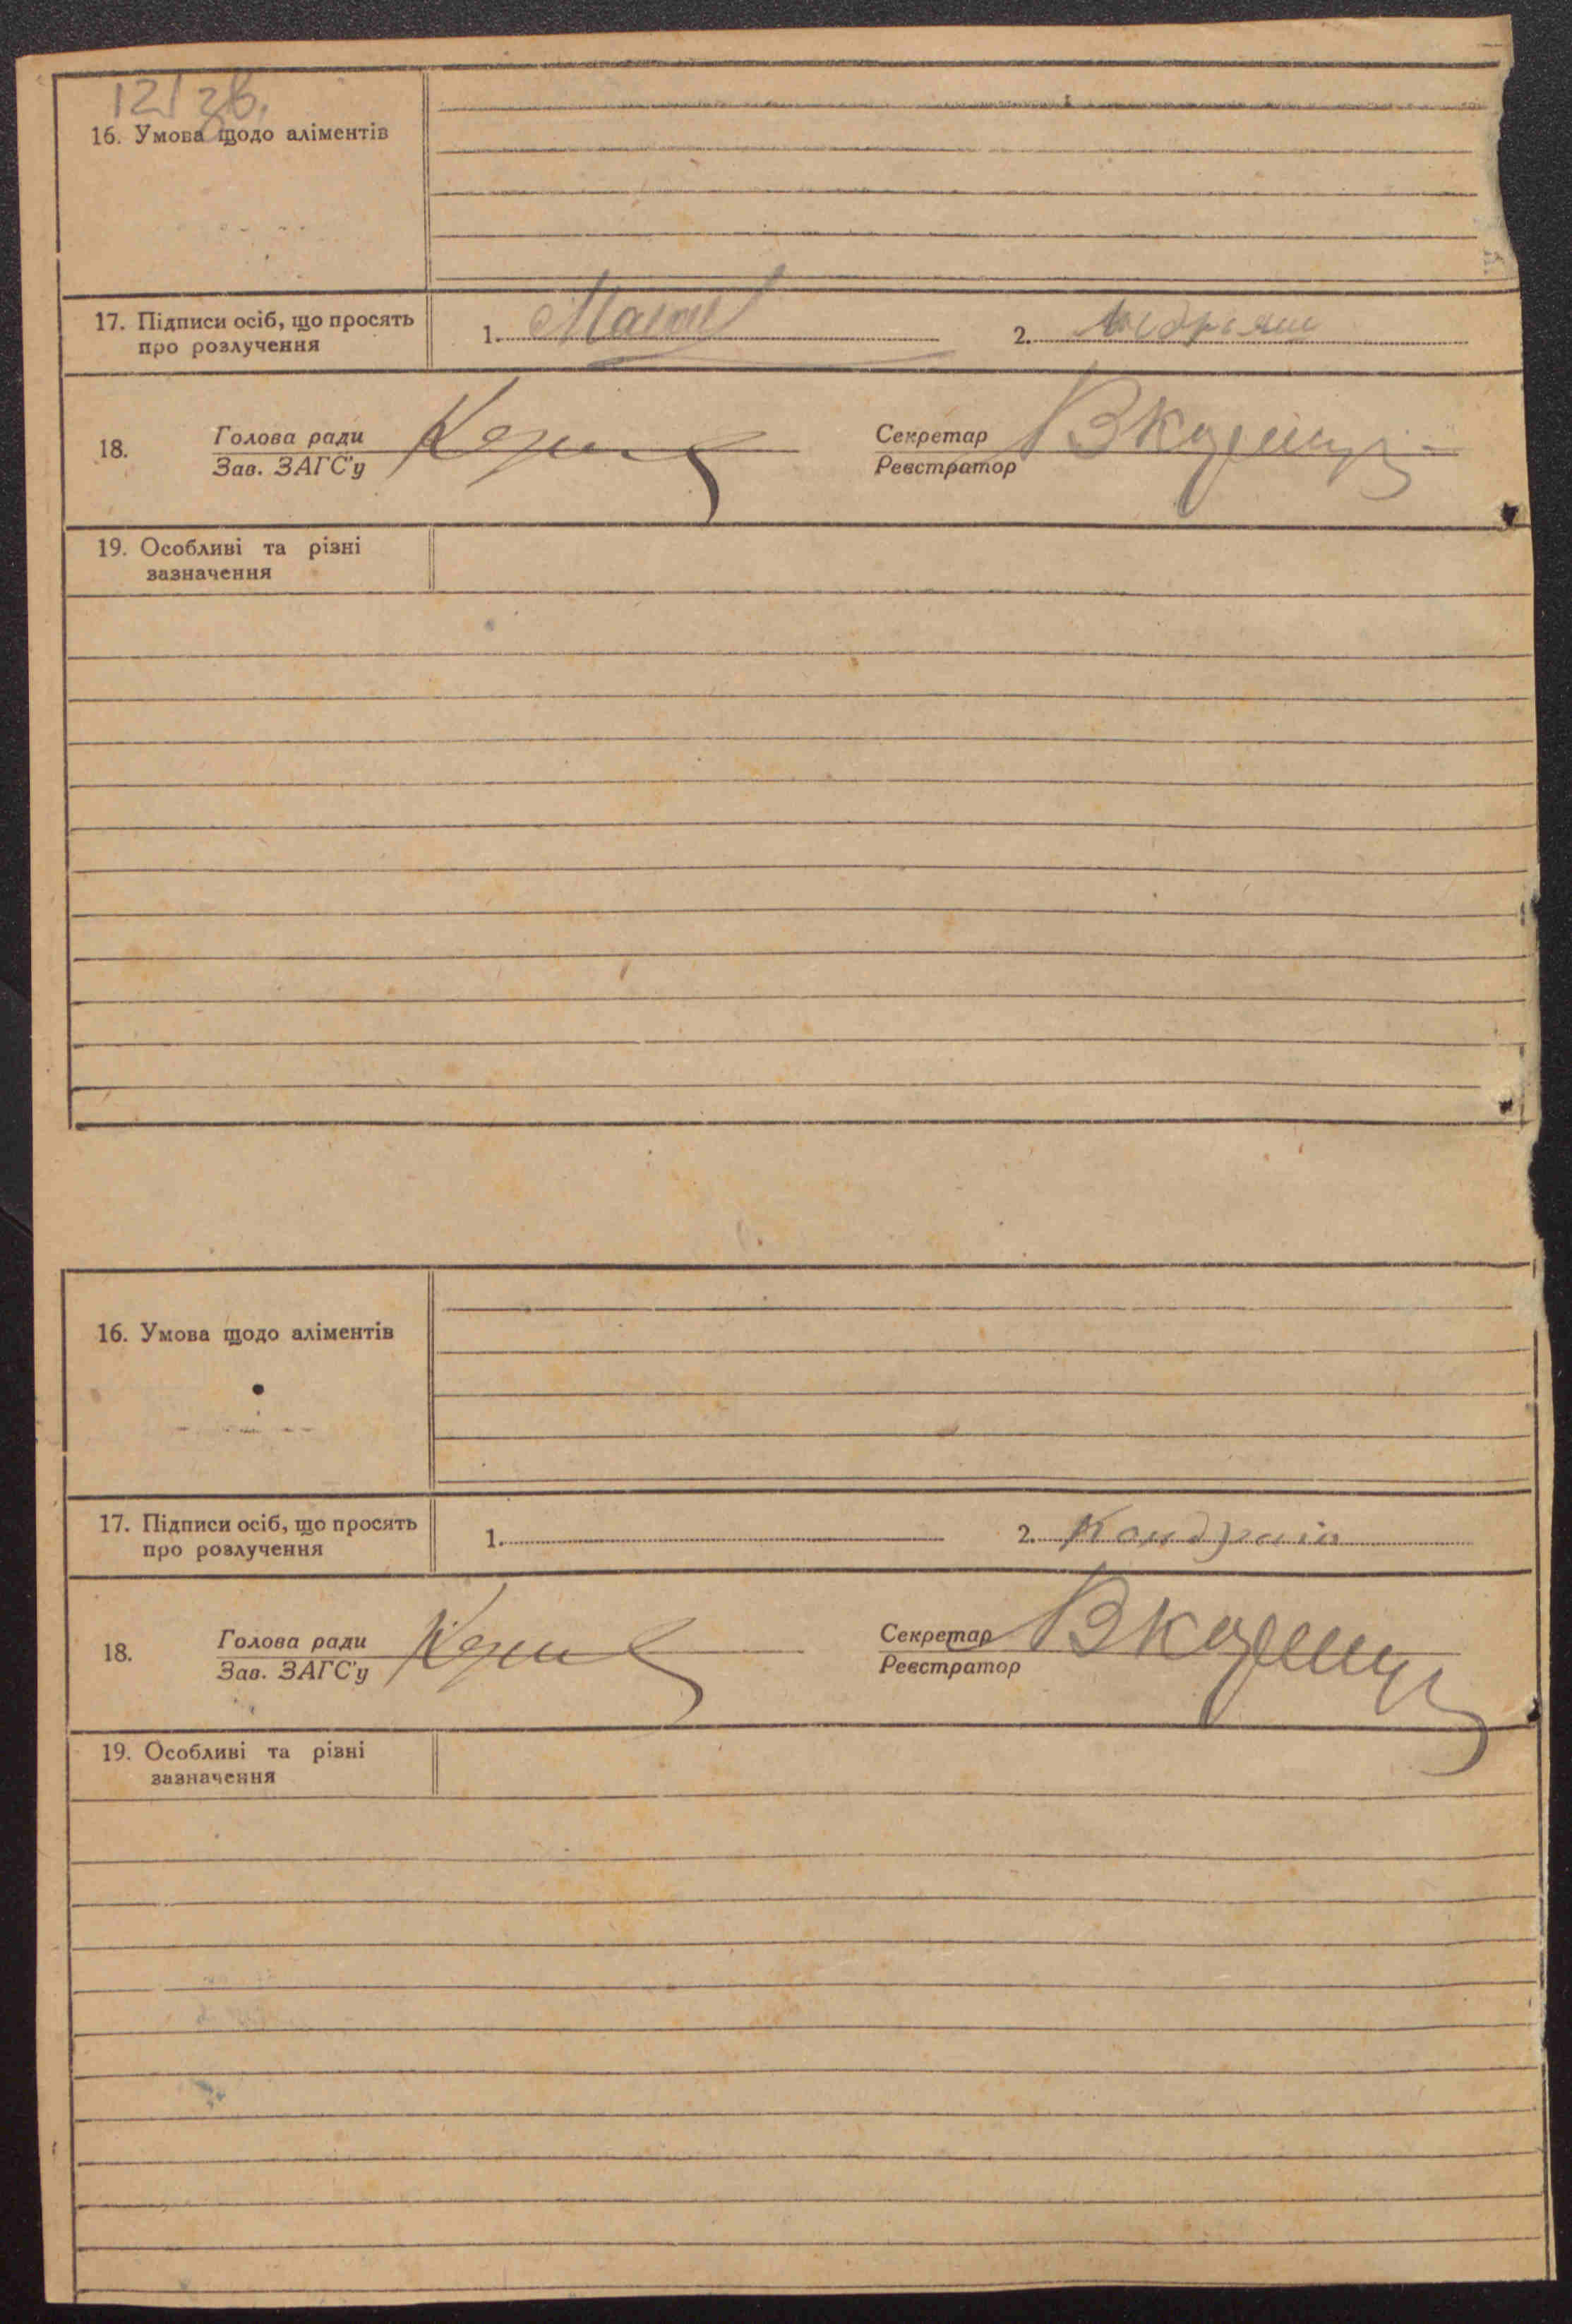 12/зв.
16. Умова щодо аліментів
17. Підписи осіб, що просять
про розлучення
1.
2.
18.
Голова ради
Зав. ЗАГС'у
Секретар
Реєстратор
19. Особливі та різні
зазначення
16. Умова щодо аліментів
17. Підписи осіб, що просять
про розлучення
1.
2.
18.
Голова ради
Зав. ЗАГС'у
Секретар
Реєстратор
19. Особливі та різні
зазначення